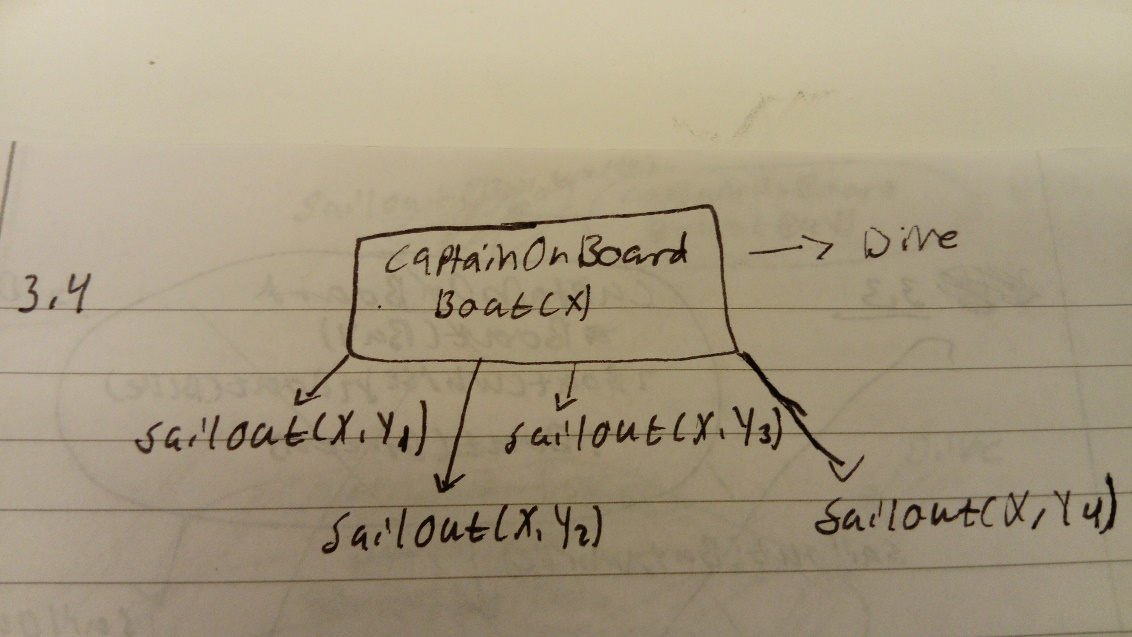 CaptainOnBoard
Boat(X)
→ Dive
3.4
sailout(X, Y1)
sailout(X, Y3)
sailout(X, Y2)
sailout(X, Y4)